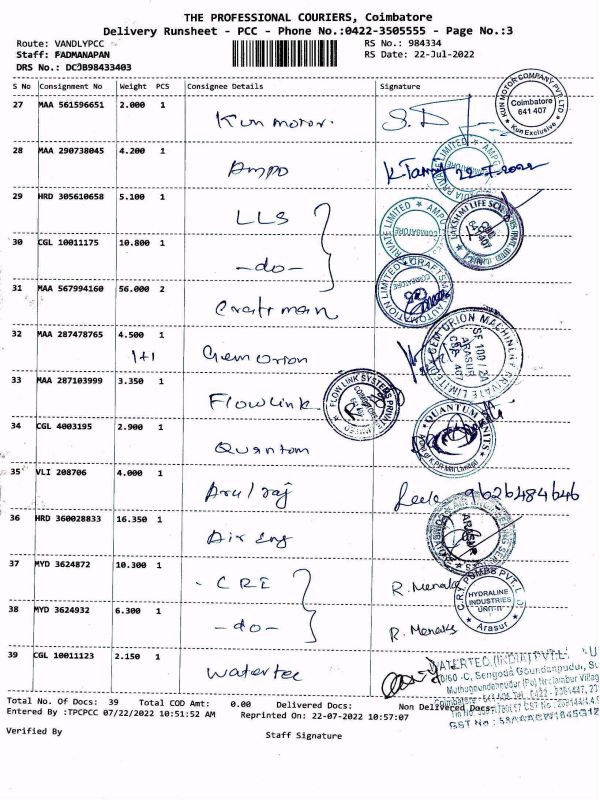 THE PROFESSIONAL COURIERS, Coimbatore
Delivery Runsheet - PCC - Phone No.:0422-3505555 - Page No.:3
Route: VANDLYPCC RS No.: 984334
Staff: PADMANAPAN RS Date: 22-Jul-2022
DRS No.: DCJB98433403
S No Consignment No Weight PCS Consignee Details Signature
27 MAA 561596651 2.000 1 Kun motor.
KUN MOTOR COMPANY PVT. LTD
Coimbatore
641 407
Kun Exclusive
28 MAA 290738045 4.200 1 Ampo
29 HRD 305610658 5.100 1 LLS
PRIVATE LIMITED AMPO
COIMBATORE
LAKSHMI LIFE
30 CGL 10011175 10.800 1 -do-
31 MAA 567994160 56.000 2 Craftman
AUTOMATION LIMITED CRAFTSMAN
COIMBATORE
32 MAA 287478765 4.500 1 Gem Orion
1+1
GEM ORION MACHINARY PRIVATE LIMITED
SF 100 / 2A
ARASUR
CBE 407
33 MAA 287103999 3.350 1 Flowlink
FLOW LINK SYSTEMS PRIVATE
34 CGL 4003195 2.900 1 Quantom
QUANTUM KNITS
35 VLI 208706 4.000 1 Arul raj Leela 9626484646
36 HRD 360028833 16.350 1 Air Eng
ARASUR
37 MYD 3624872 10.300 1 CRI R. Menaka
C.R.I. PUMPS PVT. LTD
HYDRALINE
INDUSTRIES
UNIT-II
Arasur
38 MYD 3624932 6.300 1 -do- R. Menaka
39 CGL 10011123 2.150 1 Watertec
WATERTEC (INDIA) PVT. L
-C, Sengoda Goundanpudur,
Total No. Of Docs: 39 Total COD Amt: 0.00 Delivered Docs: Non Delivered Docs:
Entered By :TPCPCC 07/22/2022 10:51:52 AM Reprinted On: 22-07-2022 10:57:07
Verified By Staff Signature